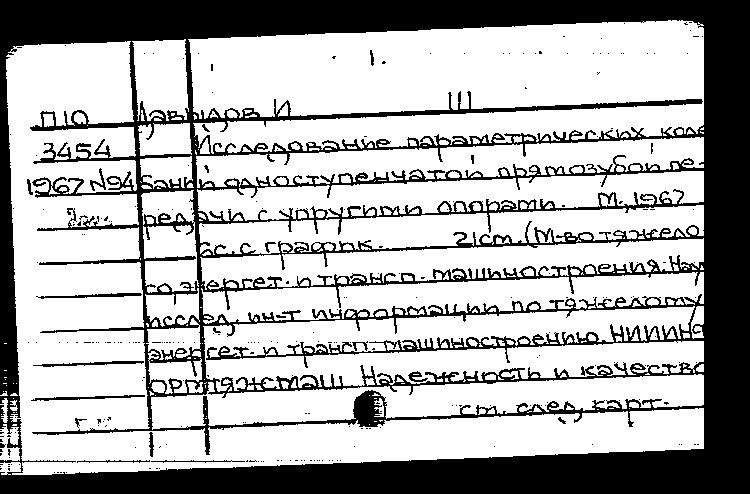 1.
П10 Давыдов, И III
3454 Исследование параметрических коле
1967 N94 баний одноступенчатой прямозубой пе-
редачи с упругими опорами. М., 1967
6с. с график. 21см. (М-во тяжело
го, энергет. и трансп. машиностроения. Науч
исслед. ин-т информации по тяжелому
энергет. и трансп. машиностроению. НИИИН
ОРМТЯЖМАШ Надежность и качество
см. след. карт.